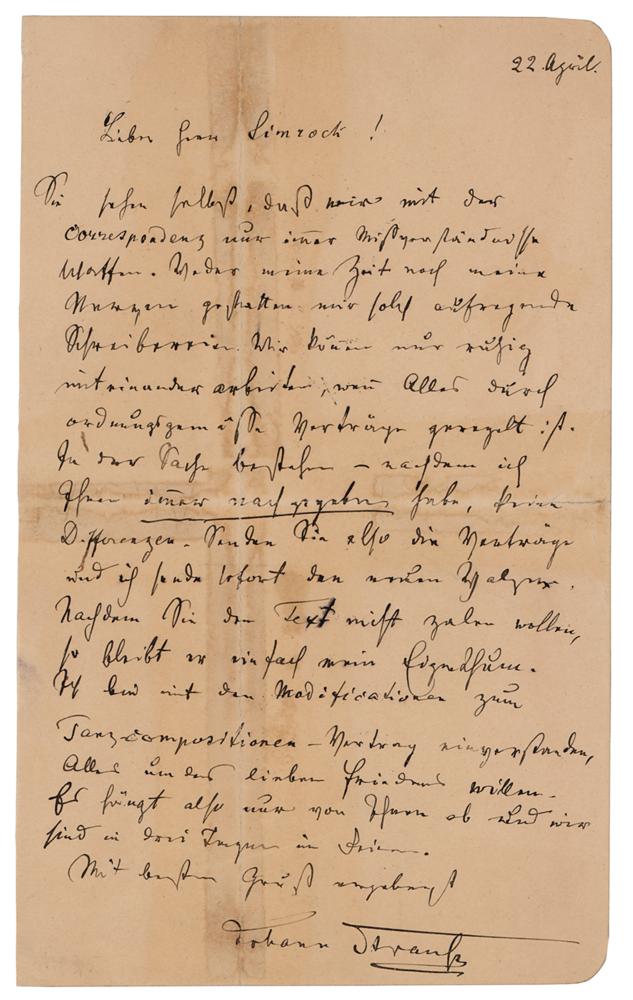 22. April.
Lieber Herr Simrock!
Sie sehen selbst, daß wir mit der
Correspondenz nur immer Mißverständnisse
schaffen. Weder meine Zeit noch meine
Nerven gestatten mir solch aufregende
Schreibereien. Wir können nur ruhig
miteinander arbeiten, wenn Alles durch
ordnungsgemäße Verträge geregelt ist.
In der Sache bestehen – nachdem ich
Ihnen immer nachgegeben habe, keine
Differenzen. Senden Sie also die Verträge
und ich sende sofort den neuen Walzer.
Nachdem Sie den Text nicht zalen wollen,
so bleibt er einfach mein Eigenthum.
Ich bin mit den Modificationen zum
Tanzcompositionen-Vertrag einverstanden,
Alles um des lieben Friedens willen.
Es hängt also nur von Ihnen ab und wir
sind in drei Tagen im Reinen.
Mit bestem Gruß ergebenst
Johann Strauss